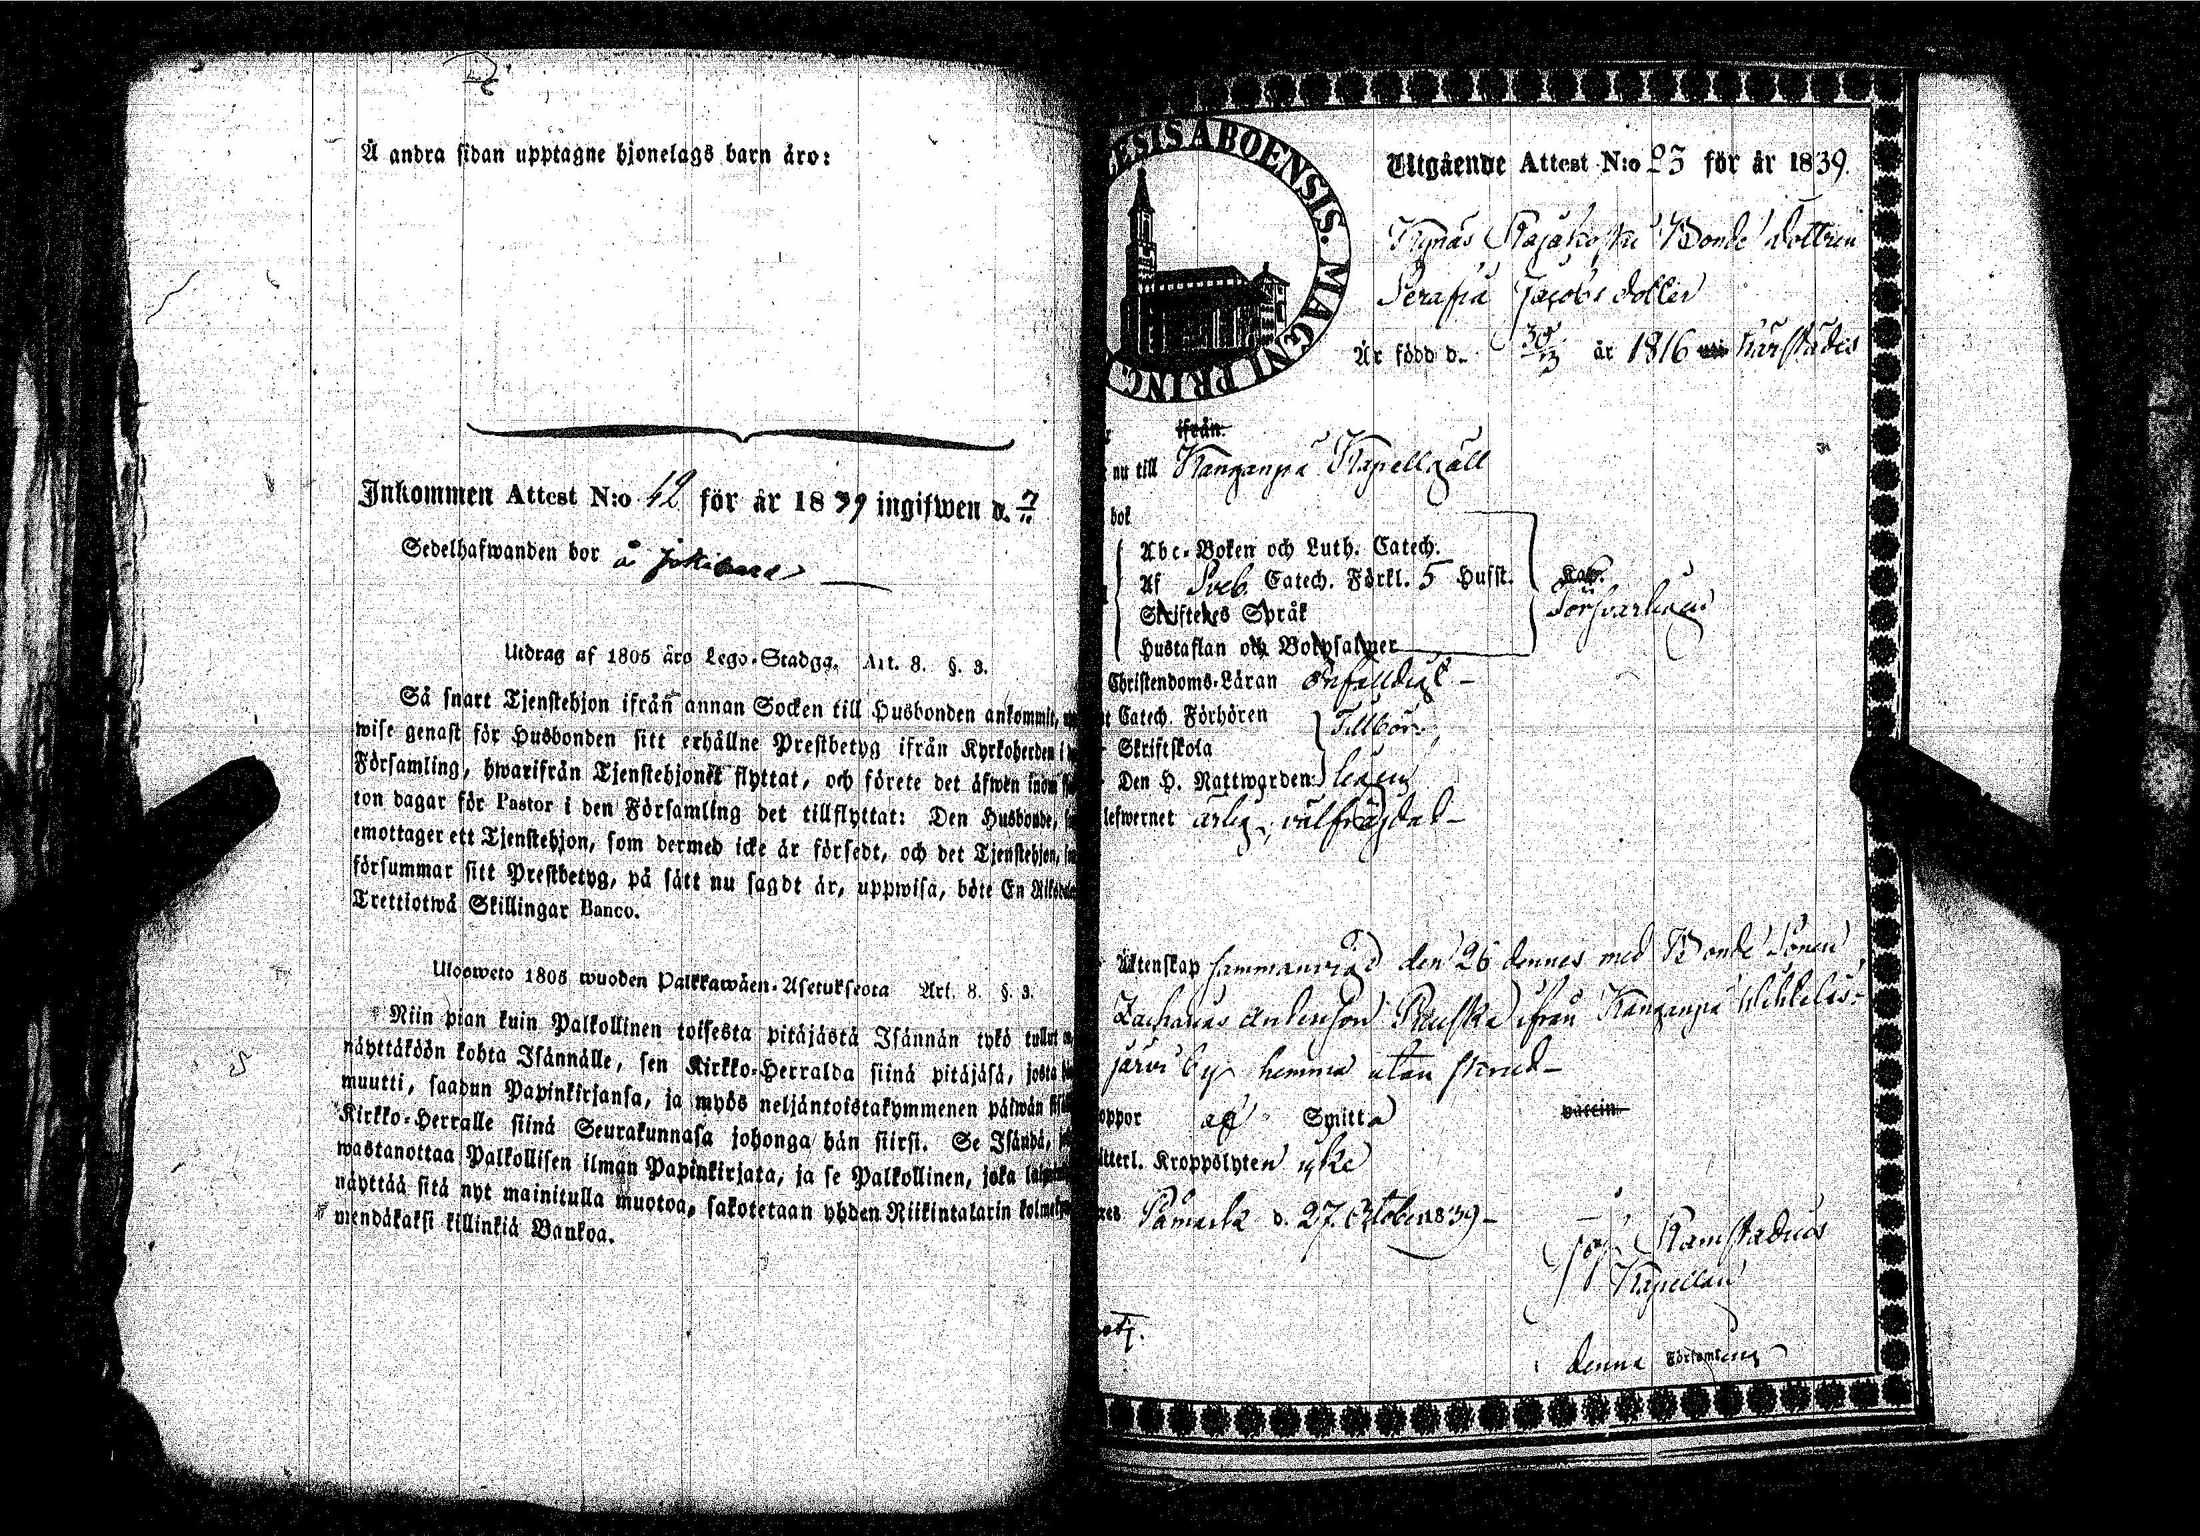 Å andra sidan upptagne hjonelags barn äro:
Inkommen Attest N:o 42 för år 1839 ingifwen d. 7/11
Sedelhafwanden bor å
Utdrag af 1805 års Lego-Stadga. Art. 8. §. 3.
Så snart Tjenstehjon ifrån annan Socken till Husbonden ankommit,
wise genast för Husbonden sitt erhållne Prestbetyg ifrån Kyrkoherden i
Församling, hwarifrån Tjenstehjonet flyttat, och förete det äfwen inom
ton dagar för Pastor i den Församling det tillflyttat: Den Husbonde,
emottager ett Tjenstehjon, som dermed icke är försedt, och det Tjenstehjon,
försummar sitt Prestbetyg, på sätt nu sagdt är, uppwisa, böte En
Trettiotwå Skillingar Banco.
Ulosweto 1805 wuoden Palkkawäen-Asetuksesta Art. 8. §. 3.
Niin pian kuin Palkollinen toisesta pitäjästä Isännän tykö tullut
näyttäköön kohta Isännälle, sen Kirkko-Herralda siinä pitäjäsä, josta
muutti, saadun Papinkirjansa, ja myös neljäntoistakymmenen päiwän
Kirkko-Herralle siinä Seurakunnasa johonga hän siirsi. Se Isändä,
wastanottaa Palkollisen ilman Papinkirjata, ja se Palkollinen, joka
näyttää sitä nyt mainitulla muotoa, sakotetaan yhden Riikintalarin
mendäkaksi killinkiä Bankoa.
ESIS ABOENSIS. MAGNI PRINC.
Utgående Attest N:o 23 för år 1839.
Bonde dottren
Serafia Jacobs dotter
Är född d. 30/3 år 1816
ifrån
nu till Kanganpä Kapellgäll
bok
Abc-Boken och Luth. Catech.
Af Sveb. Catech. Förkl. 5 Husst.
Skiftenes Språk
Hustaflan och Botpsalmer
Kan.
Försvarligen
Christendoms-Läran enfalldigt
Catech. Förhören
Skriftskola
Den H. Nattwarden
Tillbör-
ligen
lefwernet ärlig, välfrägdad
Äktenskap sammanvigd den 26 dennes med Bonde Sonen
Zacharias Andersson ifrån Kanganpä
järvi by hemma utan
oppor af Smitta vaccin.
Kroppslyten icke
Påmark d. 27 October 1839
Ramstadius
Kapellan
denna Församling